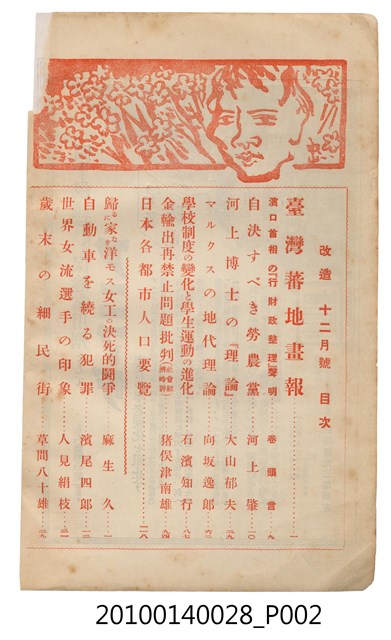 改造 十二月號 目次
臺灣蕃地畫報……一
濱口首相の「行財政整理」聲明……卷頭言…九
自決すべき勞農黨……河上肇…一〇
河上博士の『理論』……大山郁夫…
マルクスの地代理論……向坂逸郎…
學校制度の變化と學生運動の進化……石濱知行…八七
金輸出再禁止問題批判……猪俣津南雄…九四
日本各都市人口要覽……二八
歸るに家なき洋モス女工の決死的鬪爭……麻生久…
自動車を繞る犯罪……濱尾四郎…
世界女流選手の印象……人見絹枝…
歲末の細民街……草間八十雄…
20100140028_P002